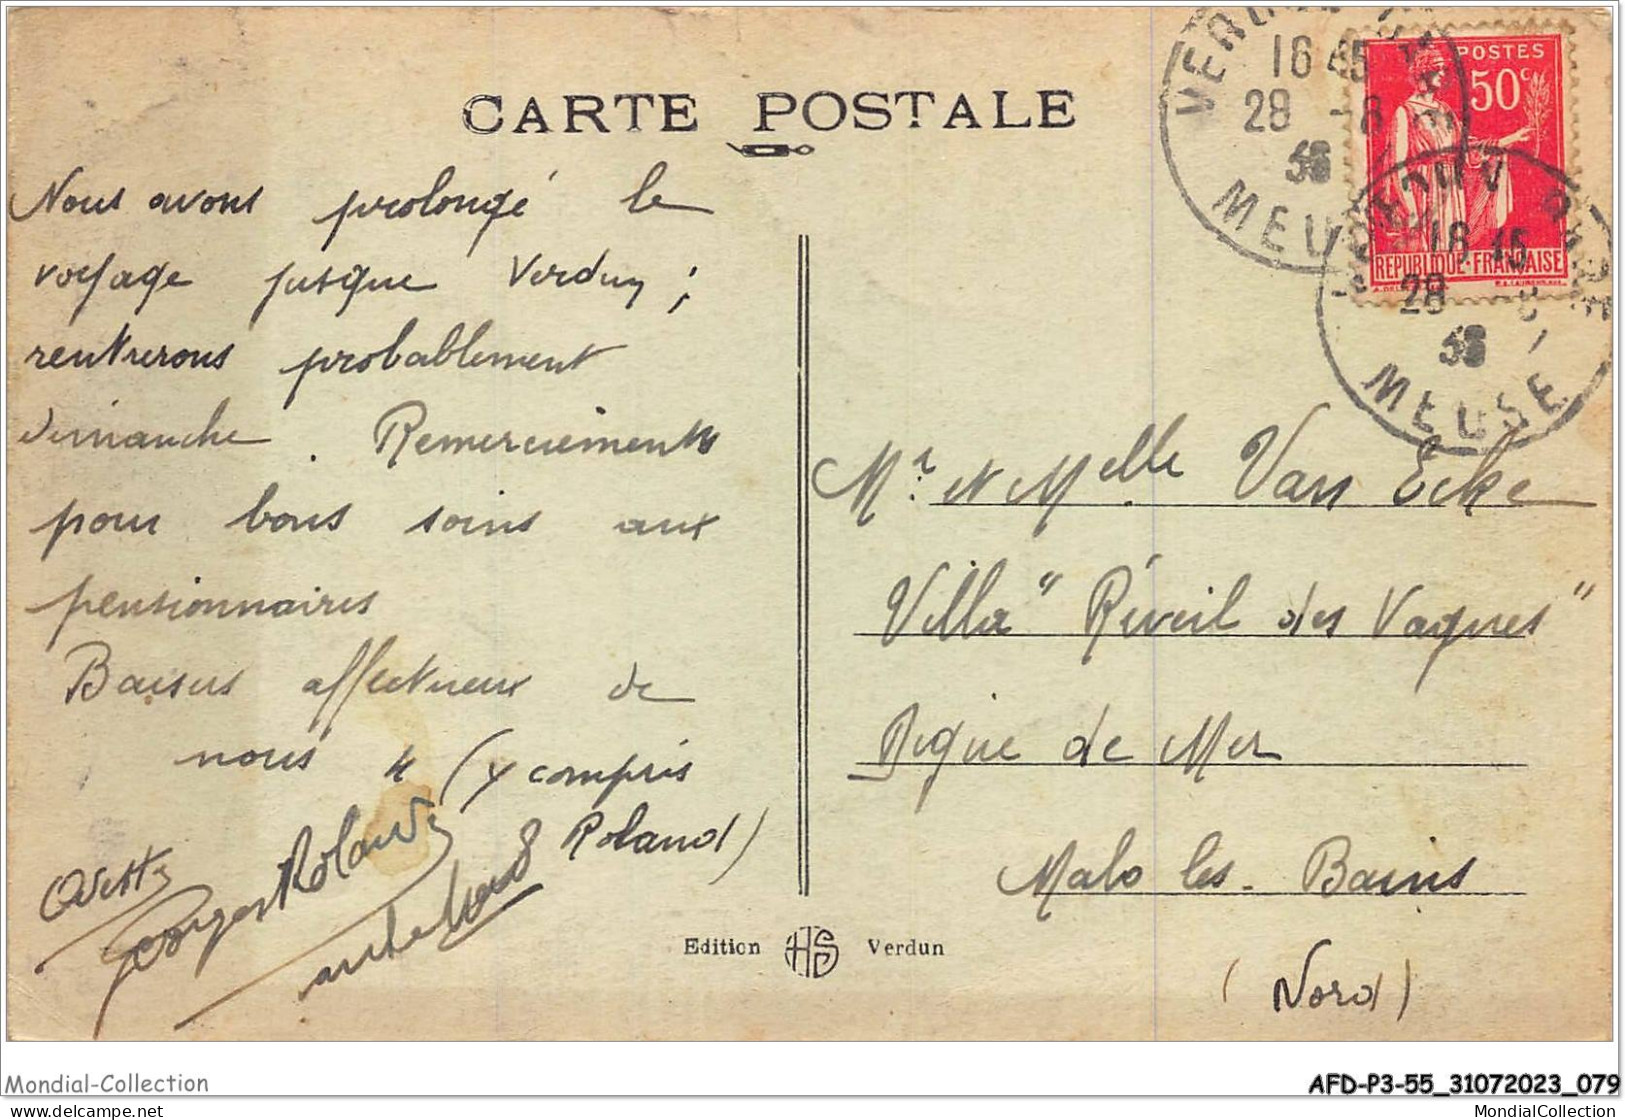 CARTE POSTALE
Nous avons prolongé le
voyage jusque Verdun ;
rentrerons probablement
dimanche. Remerciements
pour bons soins aux
pensionnaires
Baisers affectueux de
nous 4 (y compris
Roland)
Georges Roland
Mr. et Melle Van Ecke
Villa "Réveil des Vagues"
Digue de Mer
Malo les-Bains
(Nord)
POSTES
50c
REPUBLIQUE·FRANÇAISE
16 45
28 -8
36
MEUSE
16 45
28 -8
36
MEUSE
Edition HS Verdun
Mondial-Collection
AFD-P3-55_31072023_079
https://www.delcampe.net
MondialCollection